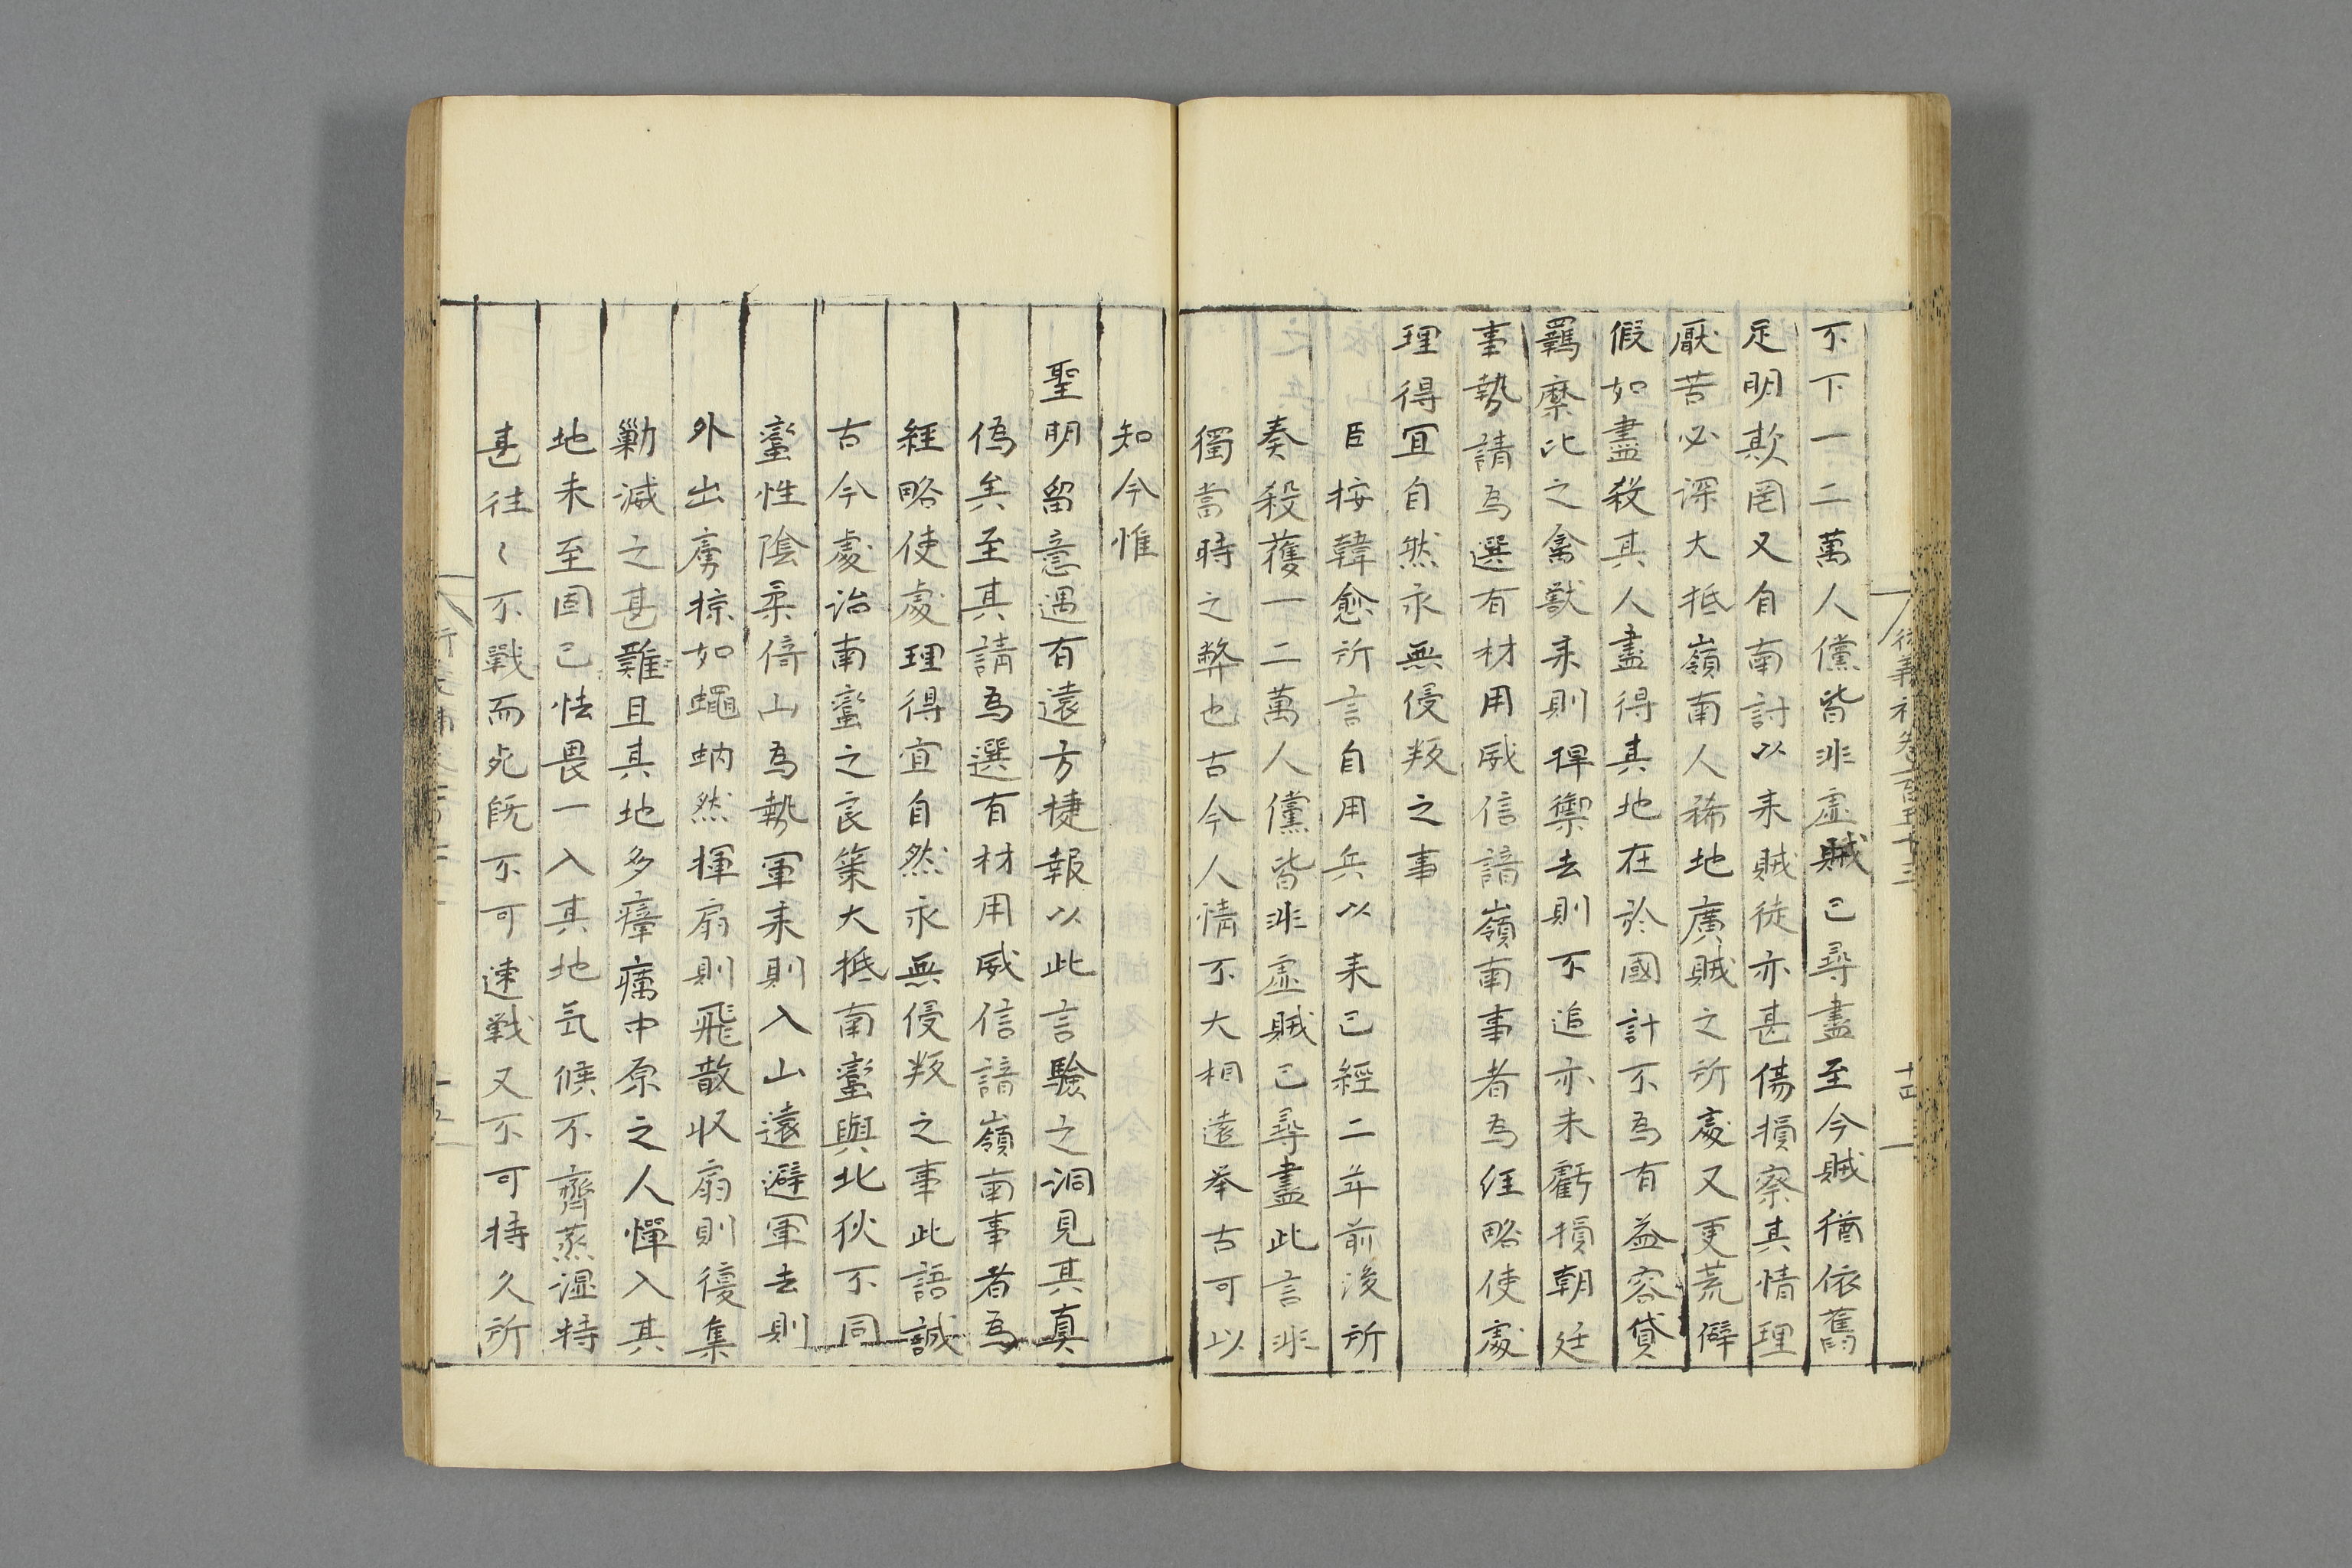 不下一二萬人儻皆非虛賊已尋盡至今賊猶依舊
足明欺罔又自南討以来賊徒亦甚傷損察其情理
厭苦必深大抵嶺南人稀地廣賊之所處又更荒僻
假如盡殺其人盡得其地在於國計不為有益容貸
羈縻比之禽獣来則捍禦去則不追亦未虧損朝廷
事勢請為選有材用威信諳嶺南事者為經略使處
理得宜自然永無侵叛之事
臣按韓愈所言自用兵以来已經二年前後所
奏殺獲一二萬人儻皆非虛賊已尋盡此言非
獨當時之弊也古今人情不大相遠举古可以
知今惟
聖明留意遇有遠方捷報以此言驗之洞見其真
偽矣至其請為選有材用威信諳嶺南事者為
經略使處理得宜自然永無侵叛之事此語誠
古今處治南蠻之良策大抵南蠻與北狄不同
蠻性陰柔倚山為勢軍来則入山遠避軍去則
外出虜掠如蠅蚋然揮扇則飛散收扇則復集
勦滅之甚難且其地多瘴癘中原之人憚入其
地未至固已怯畏一入其地氣候不齊蒸濕特
甚往〻不戰而死既不可速戰又不可持久所
衍義補卷一百五十三
十四